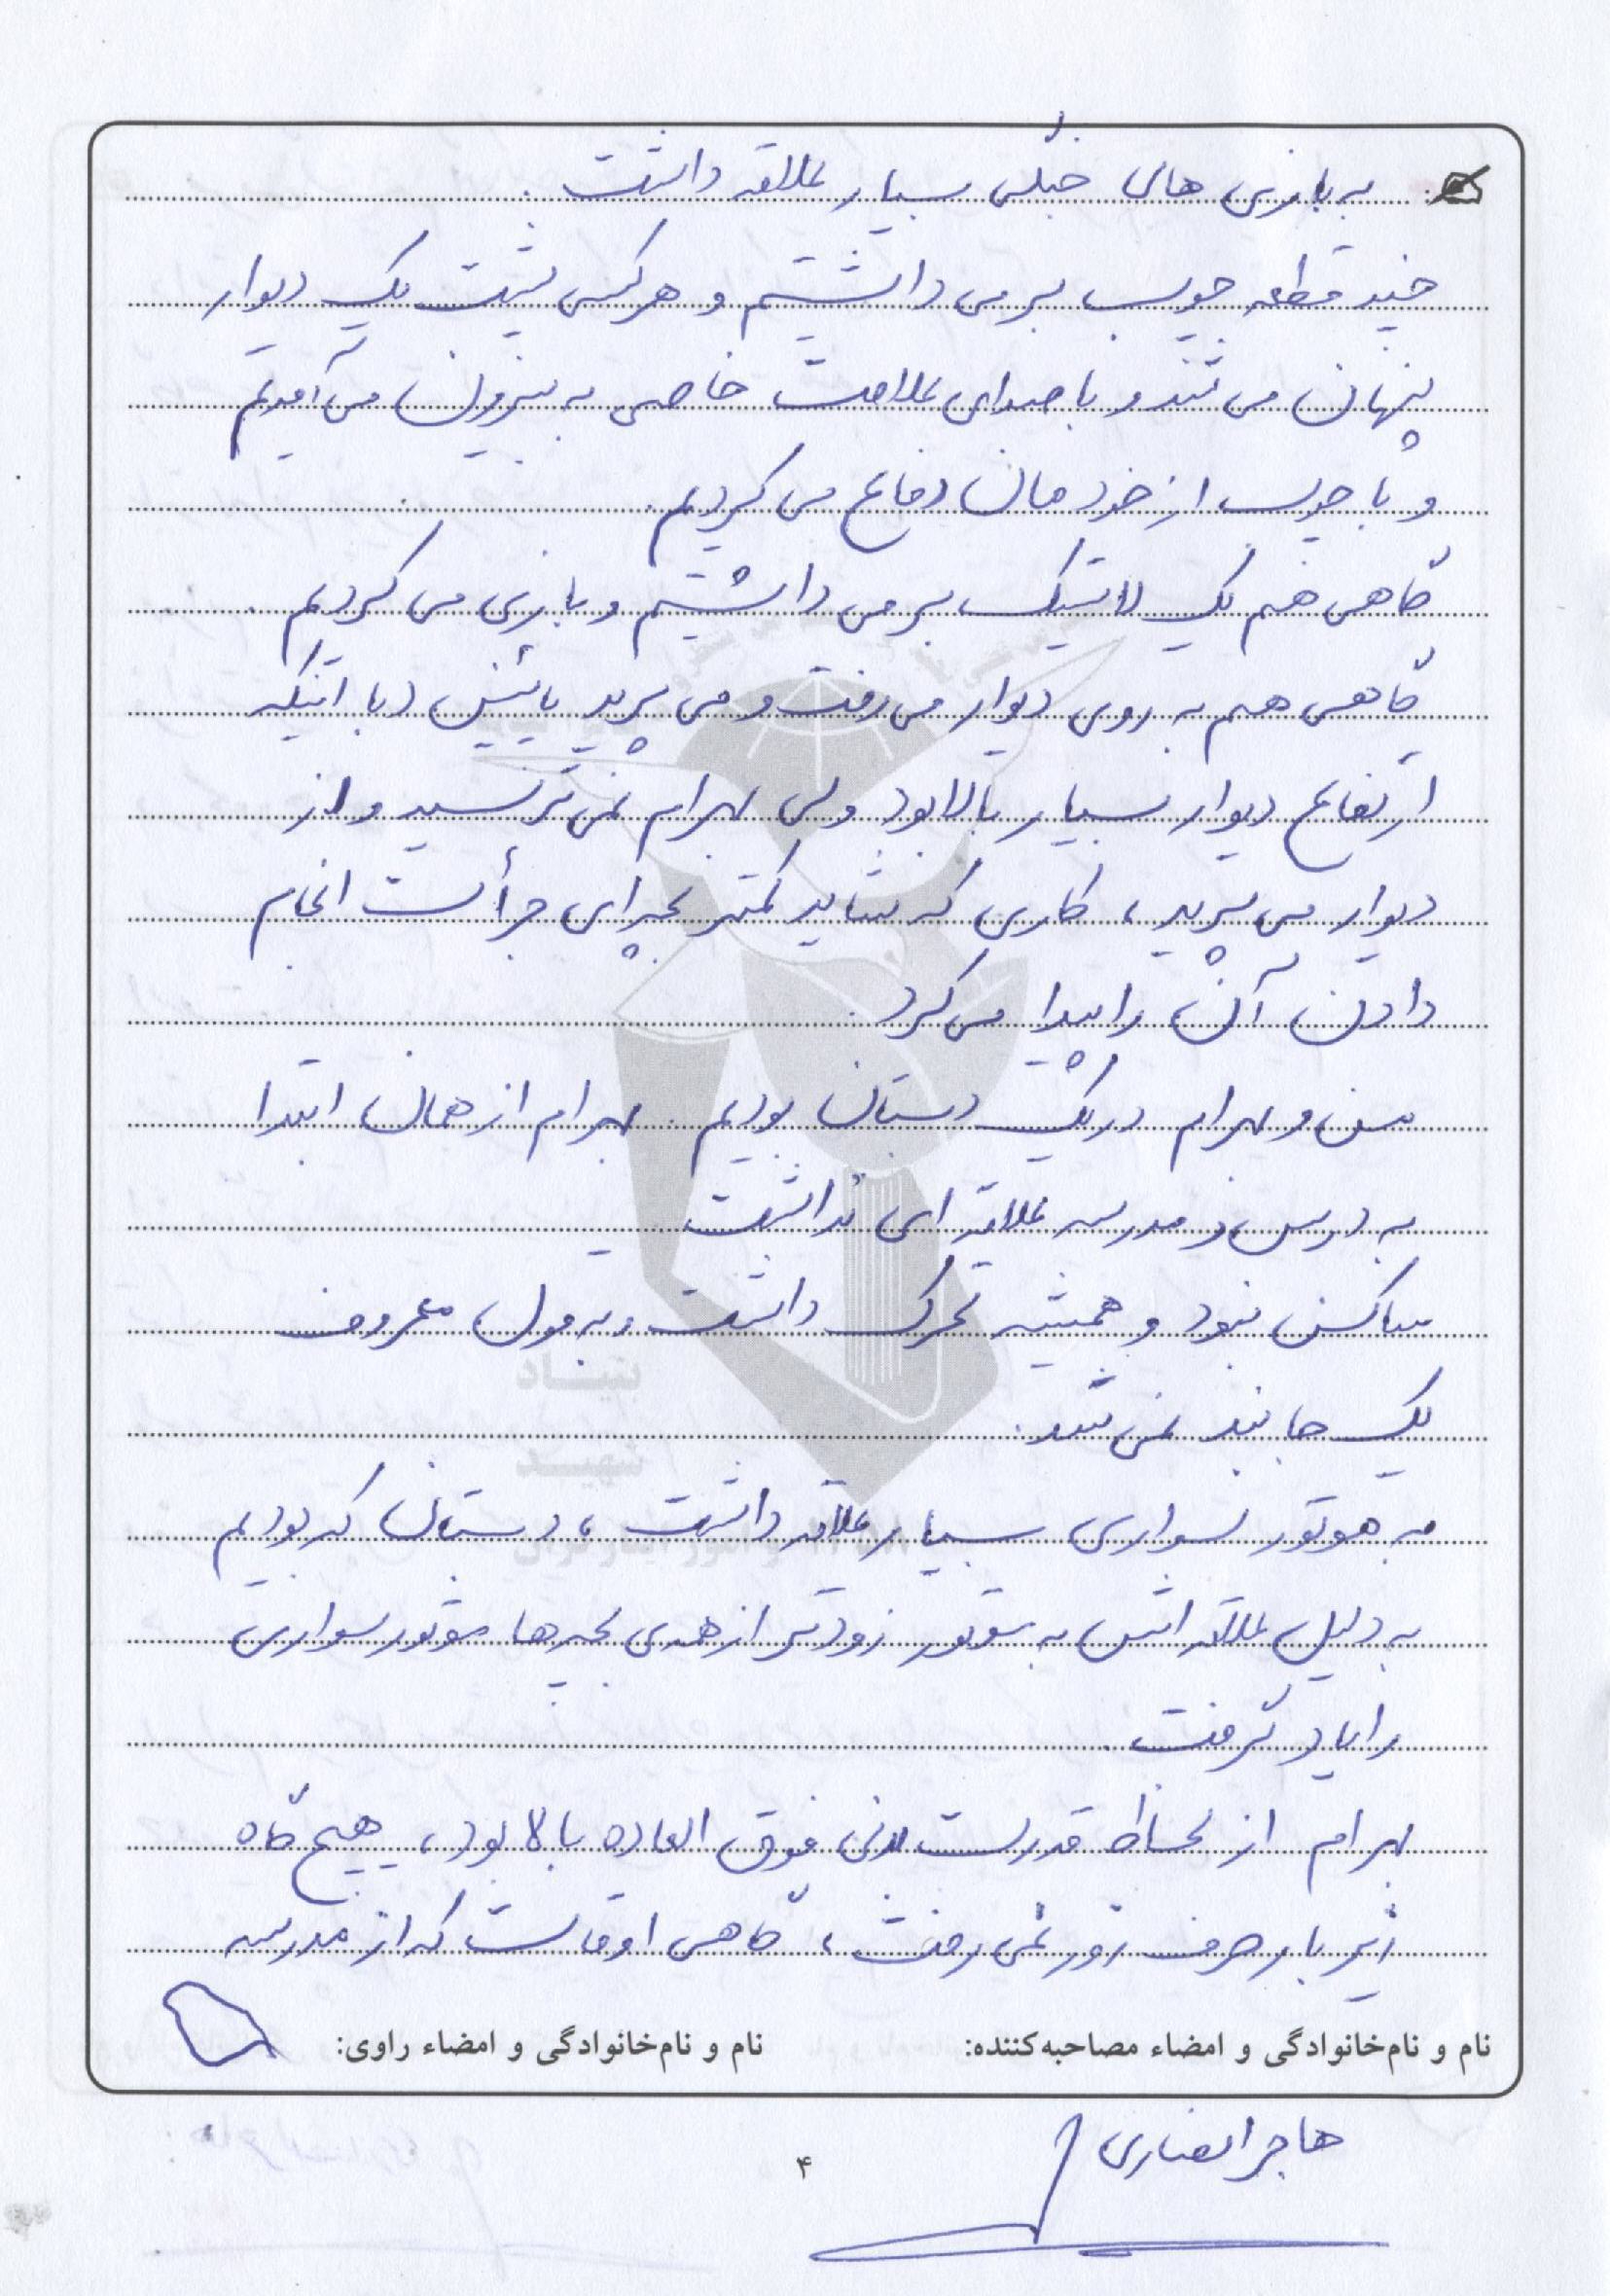 به بازی های جنگی بسیار علاقه داشت.
چند قطعه چوب برمی داشتیم و هرکس پشت یک دیوار
پنهان می شد و با صدای علامت خاصی به بیرون می آمدیم
و با چوب از خودمان دفاع می کردیم.
گاهی هم یک لاستیک برمی داشتیم و بازی می کردیم.
گاهی هم به روی دیوار می رفت و می پرید پائین و با اینکه
ارتفاع دیوار بسیار بالا بود ولی بهرام نمی ترسید و از
دیوار می پرید، کاری که شاید کمتر بچه ای جرأت انجام
دادن آن را پیدا می کرد.
من و بهرام در یک دبستان بودیم. بهرام از همان ابتدا
به درس و مدرسه علاقه ای نداشت
ساکن نبود و همیشه تحرک داشت و به قول معروف
یک جا بند نمی شد.
به موتور سواری بسیار علاقه داشت، دبستان که بودیم
به دلیل علاقه اش به موتور زودتر از همه ی بچه ها موتور سواری
را یاد گرفت.
بهرام از لحاظ قدرت بدنی فوق العاده بالا بود، هیچ گاه
زیر بار حرف زور نمی رفت، گاهی اوقات که از مدرسه
نام و نام‌خانوادگی و امضاء مصاحبه‌کننده: نام و نام‌خانوادگی و امضاء راوی:
هاجر انصاری
۴
بنیاد
شهید